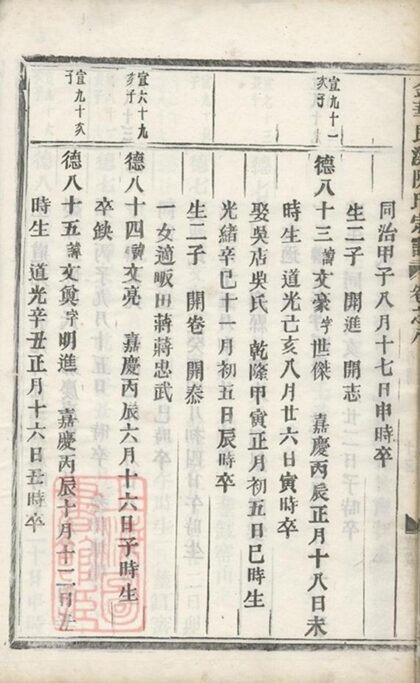 同治甲子八月十七日申時卒
生二子 開進 開志
宣九十一
亥子
德八十三 諱文豪字世傑 嘉慶丙辰正月十八日未
時生 道光己亥八月廿六日寅時卒
娶吳店吳氏 乾隆甲寅正月初五日巳時生
光緒辛巳十一月初五日辰時卒
生二子 開卷 開泰
一女適畈田蔣蔣忠武
宣六十九
亥子
德八十四 諱文亮 嘉慶丙辰六月十六日子時生
卒缺
宣九十亥
子
德八十五 諱文奠字明進 嘉慶丙辰十月十二日丑
時生 道光辛丑正月十六日丑時卒